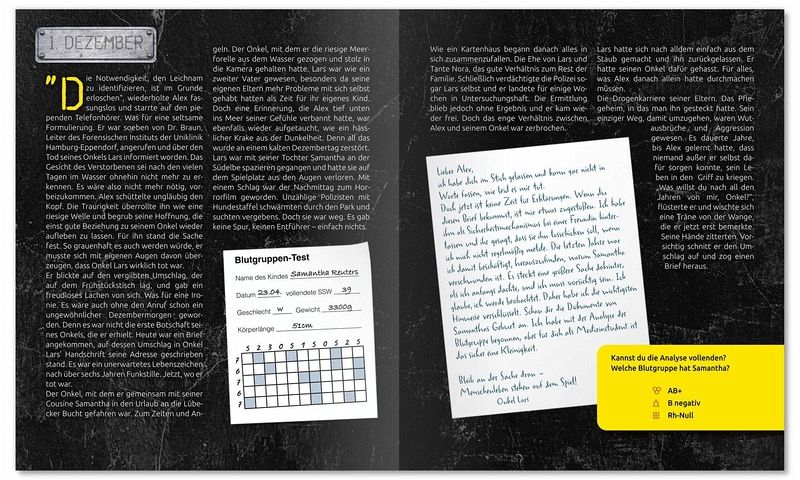 1. DEZEMBER
"Die Notwendigkeit, den Leichnam
zu identifizieren, ist im Grunde
erloschen", wiederholte Alex fas-
sungslos und starrte auf den pie-
penden Telefonhörer. Was für eine seltsame
Formulierung. Er war soeben von Dr. Braun,
Leiter des Forensischen Instituts der Uniklinik
Hamburg-Eppendorf, angerufen und über den
Tod seines Onkels Lars informiert worden. Das
Gesicht des Verstorbenen sei nach den vielen
Tagen im Wasser ohnehin nicht mehr zu er-
kennen. Es wäre also nicht mehr nötig, vor-
beizukommen. Alex schüttelte ungläubig den
Kopf. Die Traurigkeit überrollte ihn wie eine
riesige Welle und begrub seine Hoffnung, die
einst gute Beziehung zu seinem Onkel wieder
aufleben zu lassen. Für ihn stand die Sache
fest. So grauenhaft es auch werden würde, er
musste sich mit eigenen Augen davon über-
zeugen, dass Onkel Lars wirklich tot war.
Er blickte auf den vergilbten Umschlag, der
auf dem Frühstückstisch lag, und gab ein
freudloses Lachen von sich. Was für eine Iro-
nie. Es wäre auch ohne den Anruf schon ein
ungewöhnlicher Dezembermorgen gewor-
den. Denn es war nicht die erste Botschaft sei-
nes Onkels, die er erhielt. Heute war ein Brief
angekommen, auf dessen Umschlag in Onkel
Lars' Handschrift seine Adresse geschrieben
stand. Es war ein unerwartetes Lebenszeichen
nach über sechs Jahren Funkstille. Jetzt, wo er
tot war.
Der Onkel, mit dem er gemeinsam mit seiner
Cousine Samantha in den Urlaub an die Lübe-
cker Bucht gefahren war. Zum Zelten und An-
geln. Der Onkel, mit dem er die riesige Meer-
forelle aus dem Wasser gezogen und stolz in
die Kamera gehalten hatte. Lars war wie ein
zweiter Vater gewesen, besonders da seine
eigenen Eltern mehr Probleme mit sich selbst
gehabt hatten als Zeit für ihr eigenes Kind.
Doch eine Erinnerung, die Alex tief unten
ins Meer seiner Gefühle verbannt hatte, war
ebenfalls wieder aufgetaucht, wie ein häss-
licher Krake aus der Dunkelheit. Denn all das
wurde an einem kalten Dezembertag zerstört.
Lars war mit seiner Tochter Samantha an der
Südelbe spazieren gegangen und hatte sie auf
dem Spielplatz aus den Augen verloren. Mit
einem Schlag war der Nachmittag zum Hor-
rorfilm geworden: Unzählige Polizisten mit
Hundestaffel schwärmten durch den Park und
suchten vergebens. Doch sie war weg. Es gab
keine Spur, keinen Entführer – einfach nichts.
Blutgruppen-Test
Name des Kindes Samantha Reuters
Datum 23.04. vollendete SSW 39
Geschlecht w Gewicht 3300g
Körperlänge 51cm
5 2 5 0 5 1 5 0 5 2 5
7
6
7
6
7
Wie ein Kartenhaus begann danach alles in
sich zusammenzufallen. Die Ehe von Lars und
Tante Nora, das gute Verhältnis zum Rest der
Familie. Schließlich verdächtigte die Polizei so-
gar Lars selbst und er landete für einige Wo-
chen in Untersuchungshaft. Die Ermittlung
blieb jedoch ohne Ergebnis und er kam wie-
der frei. Doch das enge Verhältnis zwischen
Alex und seinem Onkel war zerbrochen.
Lieber Alex,
ich habe dich im Stich gelassen und kann gar nicht in
Worte fassen, wie leid es mir tut.
Doch jetzt ist keine Zeit für Erklärungen. Wenn du
diesen Brief bekommst, ist mir etwas zugestoßen. Ich habe
ihn als Sicherheitsmechanismus bei einer Freundin hinter-
lassen und ihr gesagt, dass sie den losschicken soll, wenn
ich mich nicht regelmäßig melde. Die letzten Jahre war
ich damit beschäftigt, herauszufinden, warum Samantha
verschwunden ist. Es steckt eine größere Sache dahinter,
als ich anfangs dachte, und ich muss vorsichtig sein. Ich
glaube, ich werde beobachtet. Daher habe ich die wichtigsten
Hinweise verschlüsselt. Schau dir die Dokumente von
Samanthas Geburt an. Ich habe mit der Analyse der
Blutgruppe begonnen, aber für dich als Medizinstudent ist
das sicher eine Kleinigkeit.
Bleib an der Sache dran –
Menschenleben stehen auf dem Spiel!
Onkel Lars
Lars hatte sich nach alldem einfach aus dem
Staub gemacht und ihn zurückgelassen. Er
hatte seinen Onkel dafür gehasst. Für alles,
was Alex danach allein hatte durchmachen
müssen.
Die Drogenkarriere seiner Eltern. Das Pfle-
geheim, in das man ihn gesteckt hatte. Sein
einziger Weg, damit umzugehen, waren Wut-
ausbrüche und Aggression
gewesen. Es dauerte Jahre,
bis Alex gelernt hatte, dass
niemand außer er selbst da-
für sorgen konnte, sein Le-
ben in den Griff zu kriegen.
„Was willst du nach all den
Jahren von mir, Onkel?",
flüsterte er und wischte sich
eine Träne von der Wange,
die er jetzt erst bemerkte.
Seine Hände zitterten. Vor-
sichtig schnitt er den Um-
schlag auf und zog einen
Brief heraus.
Kannst du die Analyse vollenden?
Welche Blutgruppe hat Samantha?
AB+
B negativ
Rh-Null